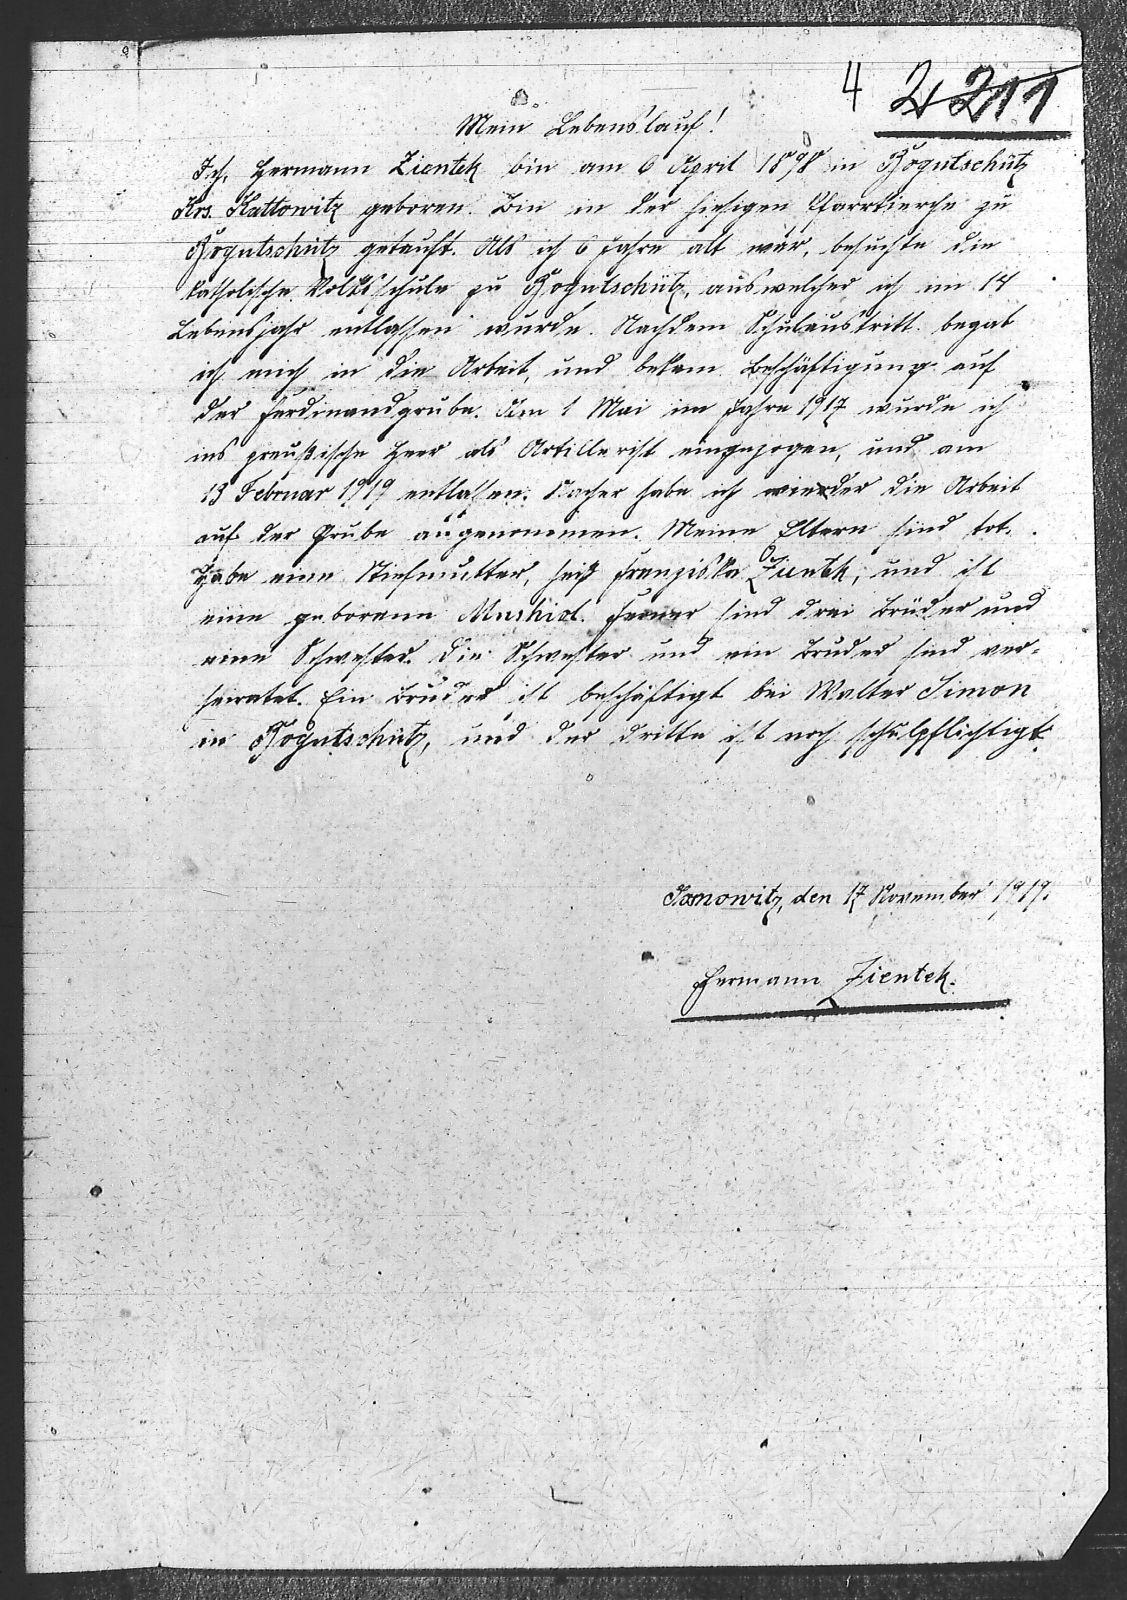 4 2 211
Mein Lebenslauf!
Ich, Hermann Zientek bin am 6 April 1898 in Bogutschütz
Krs. Kattowitz geboren. Bin in der hiesigen Pfarrkierche zu
Bogutschütz getauft. Als ich 6 Jahre alt war, besuchte die
katholische Volksschule zu Bogutschütz, aus welcher ich im 14
Lebensjahr entlassen wurde. Nachdem Schulaustritt begab
ich mich in die Arbeit, und bekam Beschäftigung auf
der Ferdinandgrube. Am 1 Mai im Jahre 1917 wurde ich
ins preußische Heer als Artillerist eingezogen, und am
13 Februar 1919 entlassen. Nacher habe ich wierder die Arbeit
auf der Grube aufgenommen. Meine Eltern sind tot.
Habe eine Stiefmutter, heiß Franziska Zientek, und ist
eine geborene Ferner sind drei Brüder und
eine Schwester. Die Schwester und ein Bruder sind ver-
heiratet. Ein Bruder ist beschäftigt bei Walter Simon
in Bogutschütz, und der dritte ist noch schulpflichtigt.
den 17 November 1919.
Hermann Zientek.